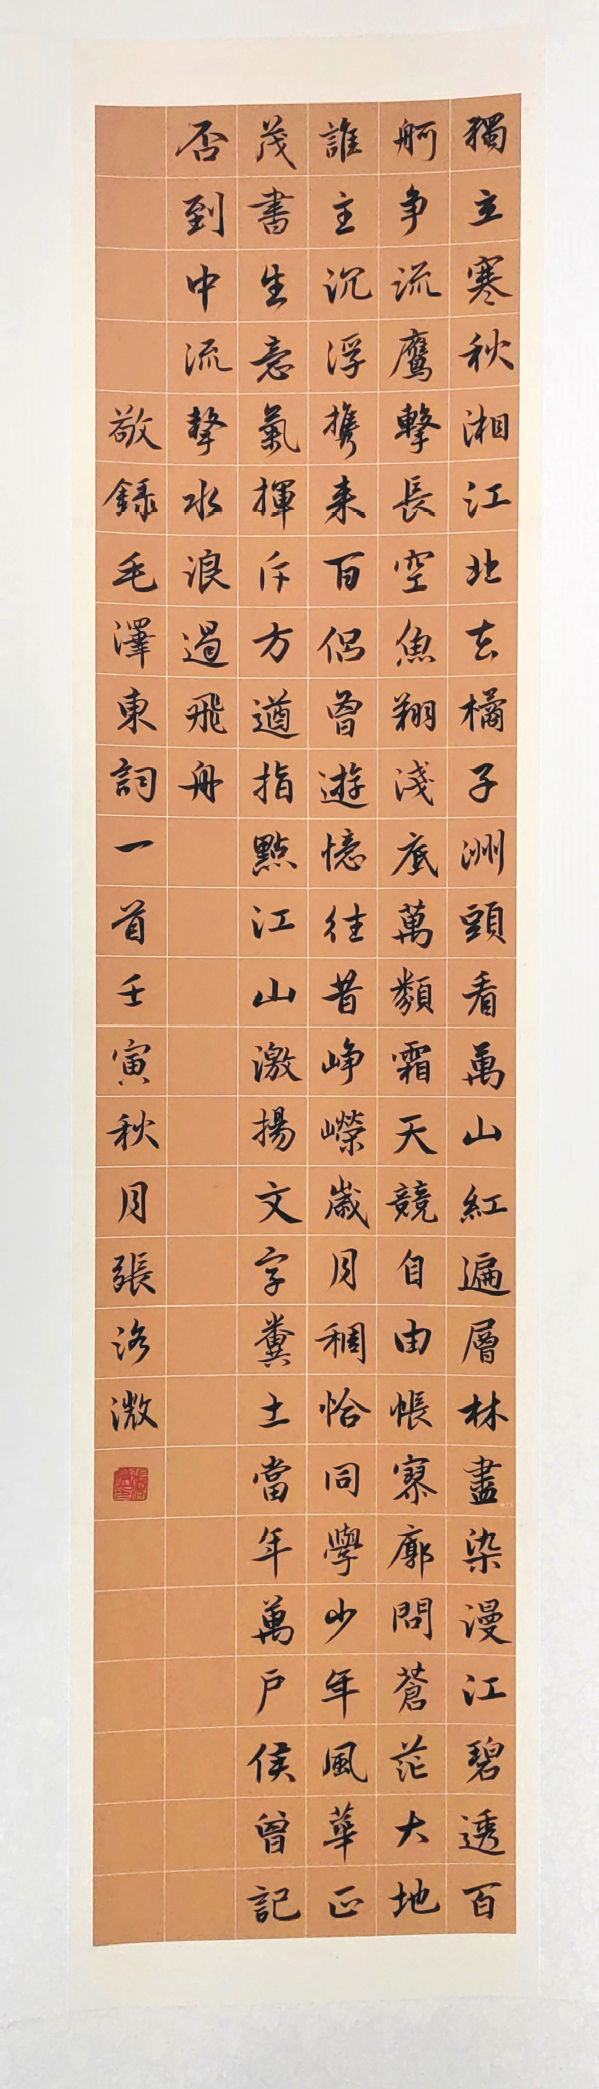 獨立寒秋湘江北去橘子洲頭看萬山紅遍層林盡染漫江碧透百
舸争流鷹擊長空魚翔淺底萬類霜天競自由悵寥廓問蒼茫大地
誰主沉浮攜来百侣曾遊憶往昔崢嶸歲月稠恰同學少年風華正
茂書生意氣揮斥方遒指點江山激揚文字糞土當年萬户侯曾記
否到中流擊水浪遏飛舟
敬録毛澤東詞一首壬寅秋月張洛溦